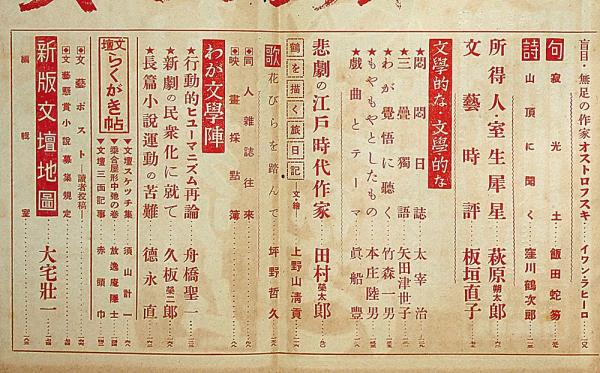 盲目・無足の作家オストロフスキ イワン・ラヒーロ
句 寂光土 飯田蛇笏
詩 山頂に聞く 窪川鶴次郎
所得人・室生犀星 萩原朔太郎
文藝時評 板垣直子
文學的な・文學的な
★悶悶日誌 太宰治
★三疊獨語 矢田津世子
★わが覺悟に聽く 竹森一男
★もやもやとしたもの 本庄陸男
★戯曲とテーマ 眞船豐
悲劇の江戸時代作家 田村榮太郎
鶴を描く旅日記 ―文・繪 上野山清貢
歌 花びらを踏んで 坪野哲久
◆同人雜誌往來
◆映畫採點簿
わが文學陣
★行動的ヒューマニズム再論 舟橋聖一
★新劇の民衆化に就て 久板榮二郎
★長篇小説運動の苦難 德永直
文壇らくがき帖
▼文壇スケッチ集 須山計一
▼聯合屋形中地の巻 放逸庵隱士
▼文壇三面記事 赤頭巾
◆文藝ポスト ―讀者投稿―
◆文藝懸賞小説募集規定
新版文壇地圖 大宅壯一
編輯室